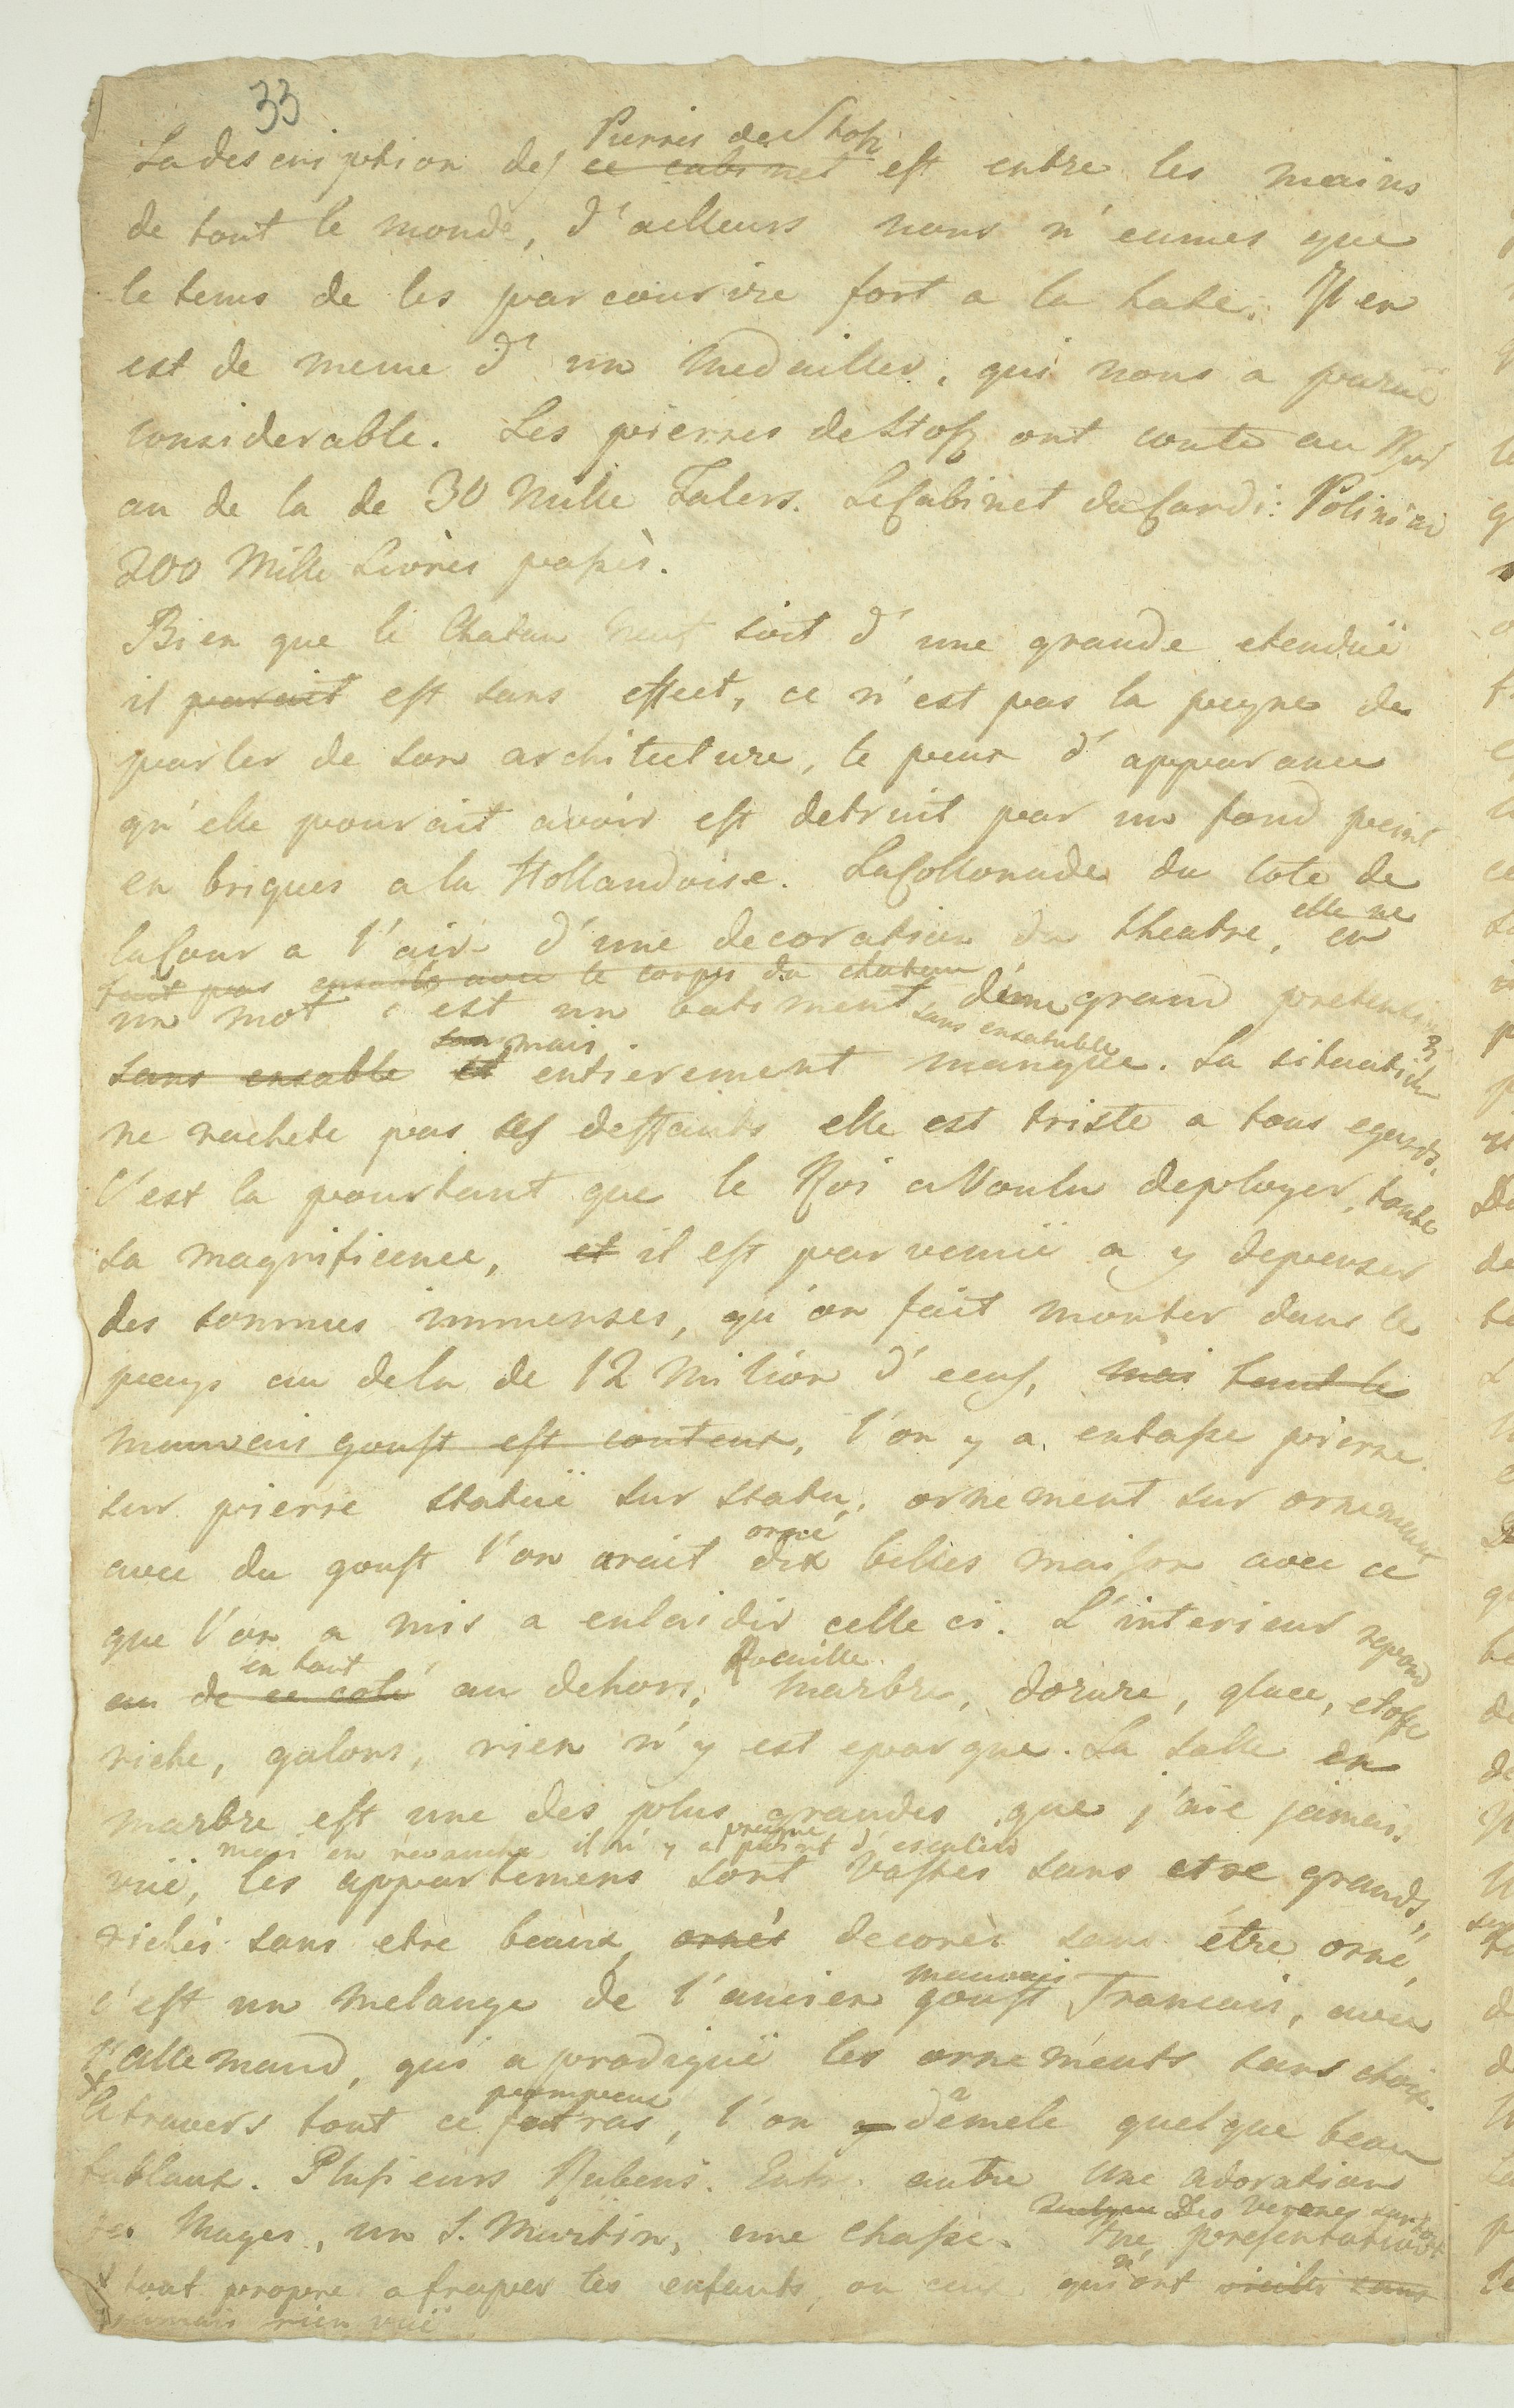 33
Pierres de Stosz
La description des ce cabinet est entre les mains
de tout le monde, d'ailleurs nous n'eumes que
le tems de les parcourire fort a la hate. Il en
est de meme d'un medailler, qui nous a paruë
considerable. Les pierres de Stosz ont couté au Roi
au de la de 30 Mille Talers. Le Cabinet du Cardi: Polinini
200 Mille Livres passès.
Bien que le Chateau neuf soit d'une grande etenduë
il parait est sans effect, ce n'est pas la peyne de
parler de son architecture, le peux d'apparance
qu'elle pourait avoir est detruit par un fond peint
en briques a la Hollandoise. La Collonade du cote de
elle ne
la Cour a l'air d'une decoration du theatre, en
fait pas ensemble avec le corps du chateau
un mot c'est un batiment d'une grand pretension
sans ensemble
sans mais
sans ensable et entierement manquée. La situation
ne rachete pas ses deffaults elle est triste a tous egards.
C'est la pourtant que le Roi a Voulu deployer, toute
sa magnificence, et il est parvenuë a y depenser
des sommes immenses, qu'on fait monter dans le
pays au dela de 12 Milion d'ecus, mais tout le
mauvais goust est couteux, l'on y a entasse pierre
sur pierre statuë sur statu, ornement sur ornement
orné
avec du goust l'on arait dix belles maison avec ce
que l'on a mis a enlaidir celle ci. L'interieur repond
en tout Rocaille
au de ce coté au dehors, marbre, dorure, glace, etoffe
riche, galons, rien n'y est epargne. La salle en
marbre est une des plus grandes que j'aie jamais
mais en revanche il n'y a presque point d'escalier
vuë, les appartemens sont vastes sans etre grands,
richés sans etre beaux, ornés decorès sans être orné,
mauvais
c'est un melange de l'ancien goust Francais, avec
l'allemand, qui a prodiguë les ornements sans choix.
pompeux
A travers tout ce fatras, l'on y dêmele quelque beau
tablaux. Plusieurs Rubens. Entr. autre Une adoration
Des Verones surtout
des Mages, un S. Martin, une chasse. Une presentation
n'
tout propre a fraper les enfants, ou ceux qui ont vieilli sans
jamais rien vuë